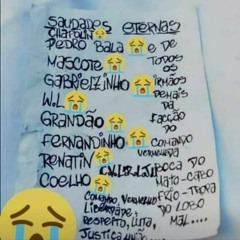 SAUDADES ETERNAS
CHAPOLIN😭
PEDRO BALA😭E DE
MASCOTE😭 TODOS
GABRIELZINHO😭 OS IRMÃOS
W.L😭 DEMAIS
GRANDÃO😭 DA FACÇÃO
FERNANDINHO😭 DO COMANDO
RENATIN😭 VERMELHO
COELHO😭 BOCA DO
MATO-CABO
COMANDO VERMELHO FRIO-TROPA
LIBERDADE, DO LOBO
RESPEITO, LUTA, MAL....
JUSTIÇA, UNIÃO...